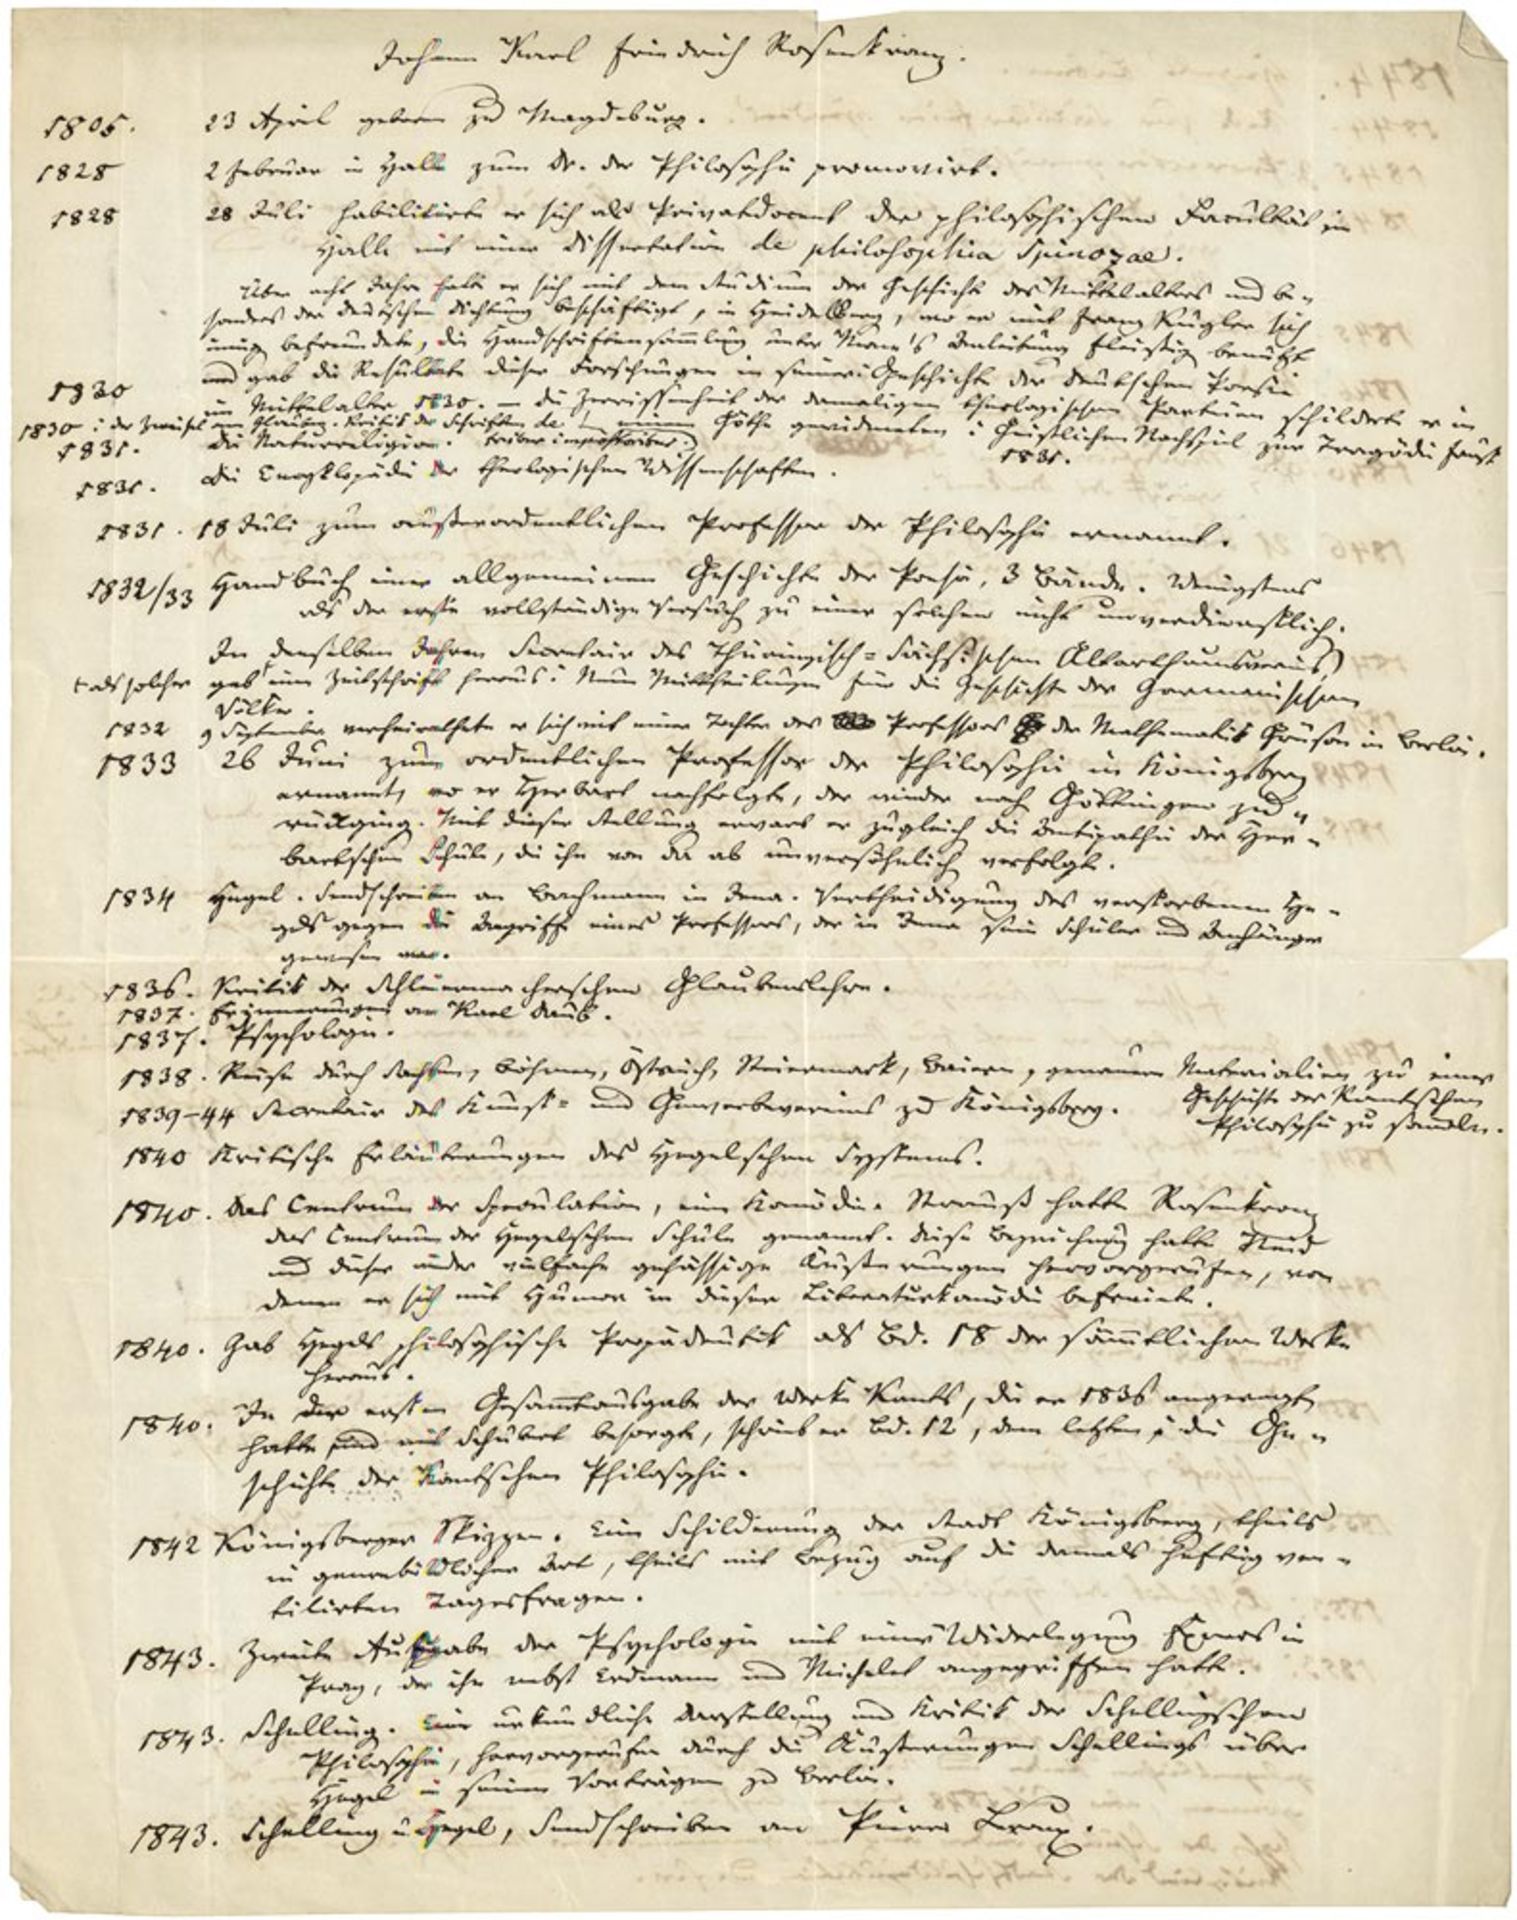 Johann Karl Friedrich Rosenkranz.
1805. 23 April geboren zu Magdeburg.
1828 2 Februar in Halle zum Dr. der Philosophie promovirt.
1828 28 Juli habilitirte er sich als Privatdocent der philosophischen Facultät in
Halle mit einer Dissertation de philosophia Spinozae.
Über acht Jahre hatte er sich mit dem Studium der Geschichte des Mittelalters und be-
sonders der deutschen Dichtung beschäftigt, in Heidelberg, wo er mit Franz Kugler sich
innig befreundete, die Handschriftensammlung unter Mone's Anleitung fleissig benutzt
und gab die Resultate dieser Forschungen in seiner: Geschichte der deutschen Poesie
1830 im Mittelalter 1830. – die Zerrissenheit der damaligen theologischen Parteien schilderte er in
1830: der Zweifel am Glauben. Kritik der Schriften de tribus impostoribus.
einem Göthe gewidmeten: Geistlichen Nachspiel zur Tragödie Faust
1831.
1831. Die Naturreligion.
1831. Die Encyklopädie der theologischen Wissenschaften.
1831. 18 Juli zum außerordentlichen Professor der Philosophie ernannt.
1832/33 Handbuch einer allgemeinen Geschichte der Poesie, 3 Bände. Wenigstens
als der erste vollständige Versuch zu einer solchen nicht unverdienstlich.
In denselben Jahren Secretair des Thüringisch-Sächsischen Alterthumsvereins,
als solcher gab eine Zeitschrift heraus: Neue Mittheilungen für die Geschichte der Germanischen
Völker.
1832 9 September verheirathete er sich mit einer Tochter des Professors der Mathematik Grüson in Berlin.
1833 26 Juni zum ordentlichen Professor der Philosophie in Königsberg
ernannt, wo er Herbart nachfolgte, der wieder nach Göttingen zu-
rückging. Mit dieser Stellung erwarb er zugleich die Antipathie der Her-
bartschen Schule, die ihn von da ab unversöhnlich verfolgte.
1834 Hegel. Sendschreiben an Bachmann in Jena. Vertheidigung des verstorbenen He-
gels gegen die Angriffe eines Professors, der in Jena sein Schüler und Anhänger
gewesen war.
1836. Kritik der Schleiermacherschen Glaubenslehre.
1837. Erinnerungen an Karl Daub.
1837. Psychologie.
1838. Reise durch Sachsen, Böhmen, Östreich, Steiermark, Baiern, genauere Materialien zu einer
Geschichte der Kantschen
Philosophie zu sammeln.
1839–44 Secretair des Kunst- und Gewerbevereins zu Königsberg.
1840 Kritische Erläuterungen des Hegelschen Systems.
1840. Das Centrum der Speculation, eine Komödie. Strauß hatte Rosenkranz
das Centrum der Hegelschen Schule genannt. Diese Bezeichnung hatte Neid
und dieser wieder vielfache gehässige Äußerungen hervorgerufen, von
denen er sich mit Humor in dieser Literaturkomödie befreiete.
1840. Gab Hegels philosophische Propädeutik als Bd. 18 der sämmtlichen Werke
heraus.
1840. In der ersten Gesammtausgabe der Werke Kants, die er 1836 angeregt
hatte und mit Schubert besorgte, schrieb er Bd. 12, dem letzten, die Ge-
schichte der Kantschen Philosophie.
1842 Königsberger Skizzen. Eine Schilderung der Stadt Königsberg, theils
in genrebildlicher Art, theils mit Bezug auf die damals heftig ven-
tilirten Tagesfragen.
1843. Zweite Ausgabe der Psychologie mit einer Widerlegung Exners in
Prag, der ihn nebst Erdmann und Michelet angegriffen hatte.
1843. Schelling. Eine urkundliche Darstellung und Kritik der Schellingschen
Philosophie, hervorgerufen durch die Äusserungen Schellings über
Hegel in seinen Vorträgen zu Berlin.
1843. Schelling u Hegel, Sendschreiben an Pierre Leroux.